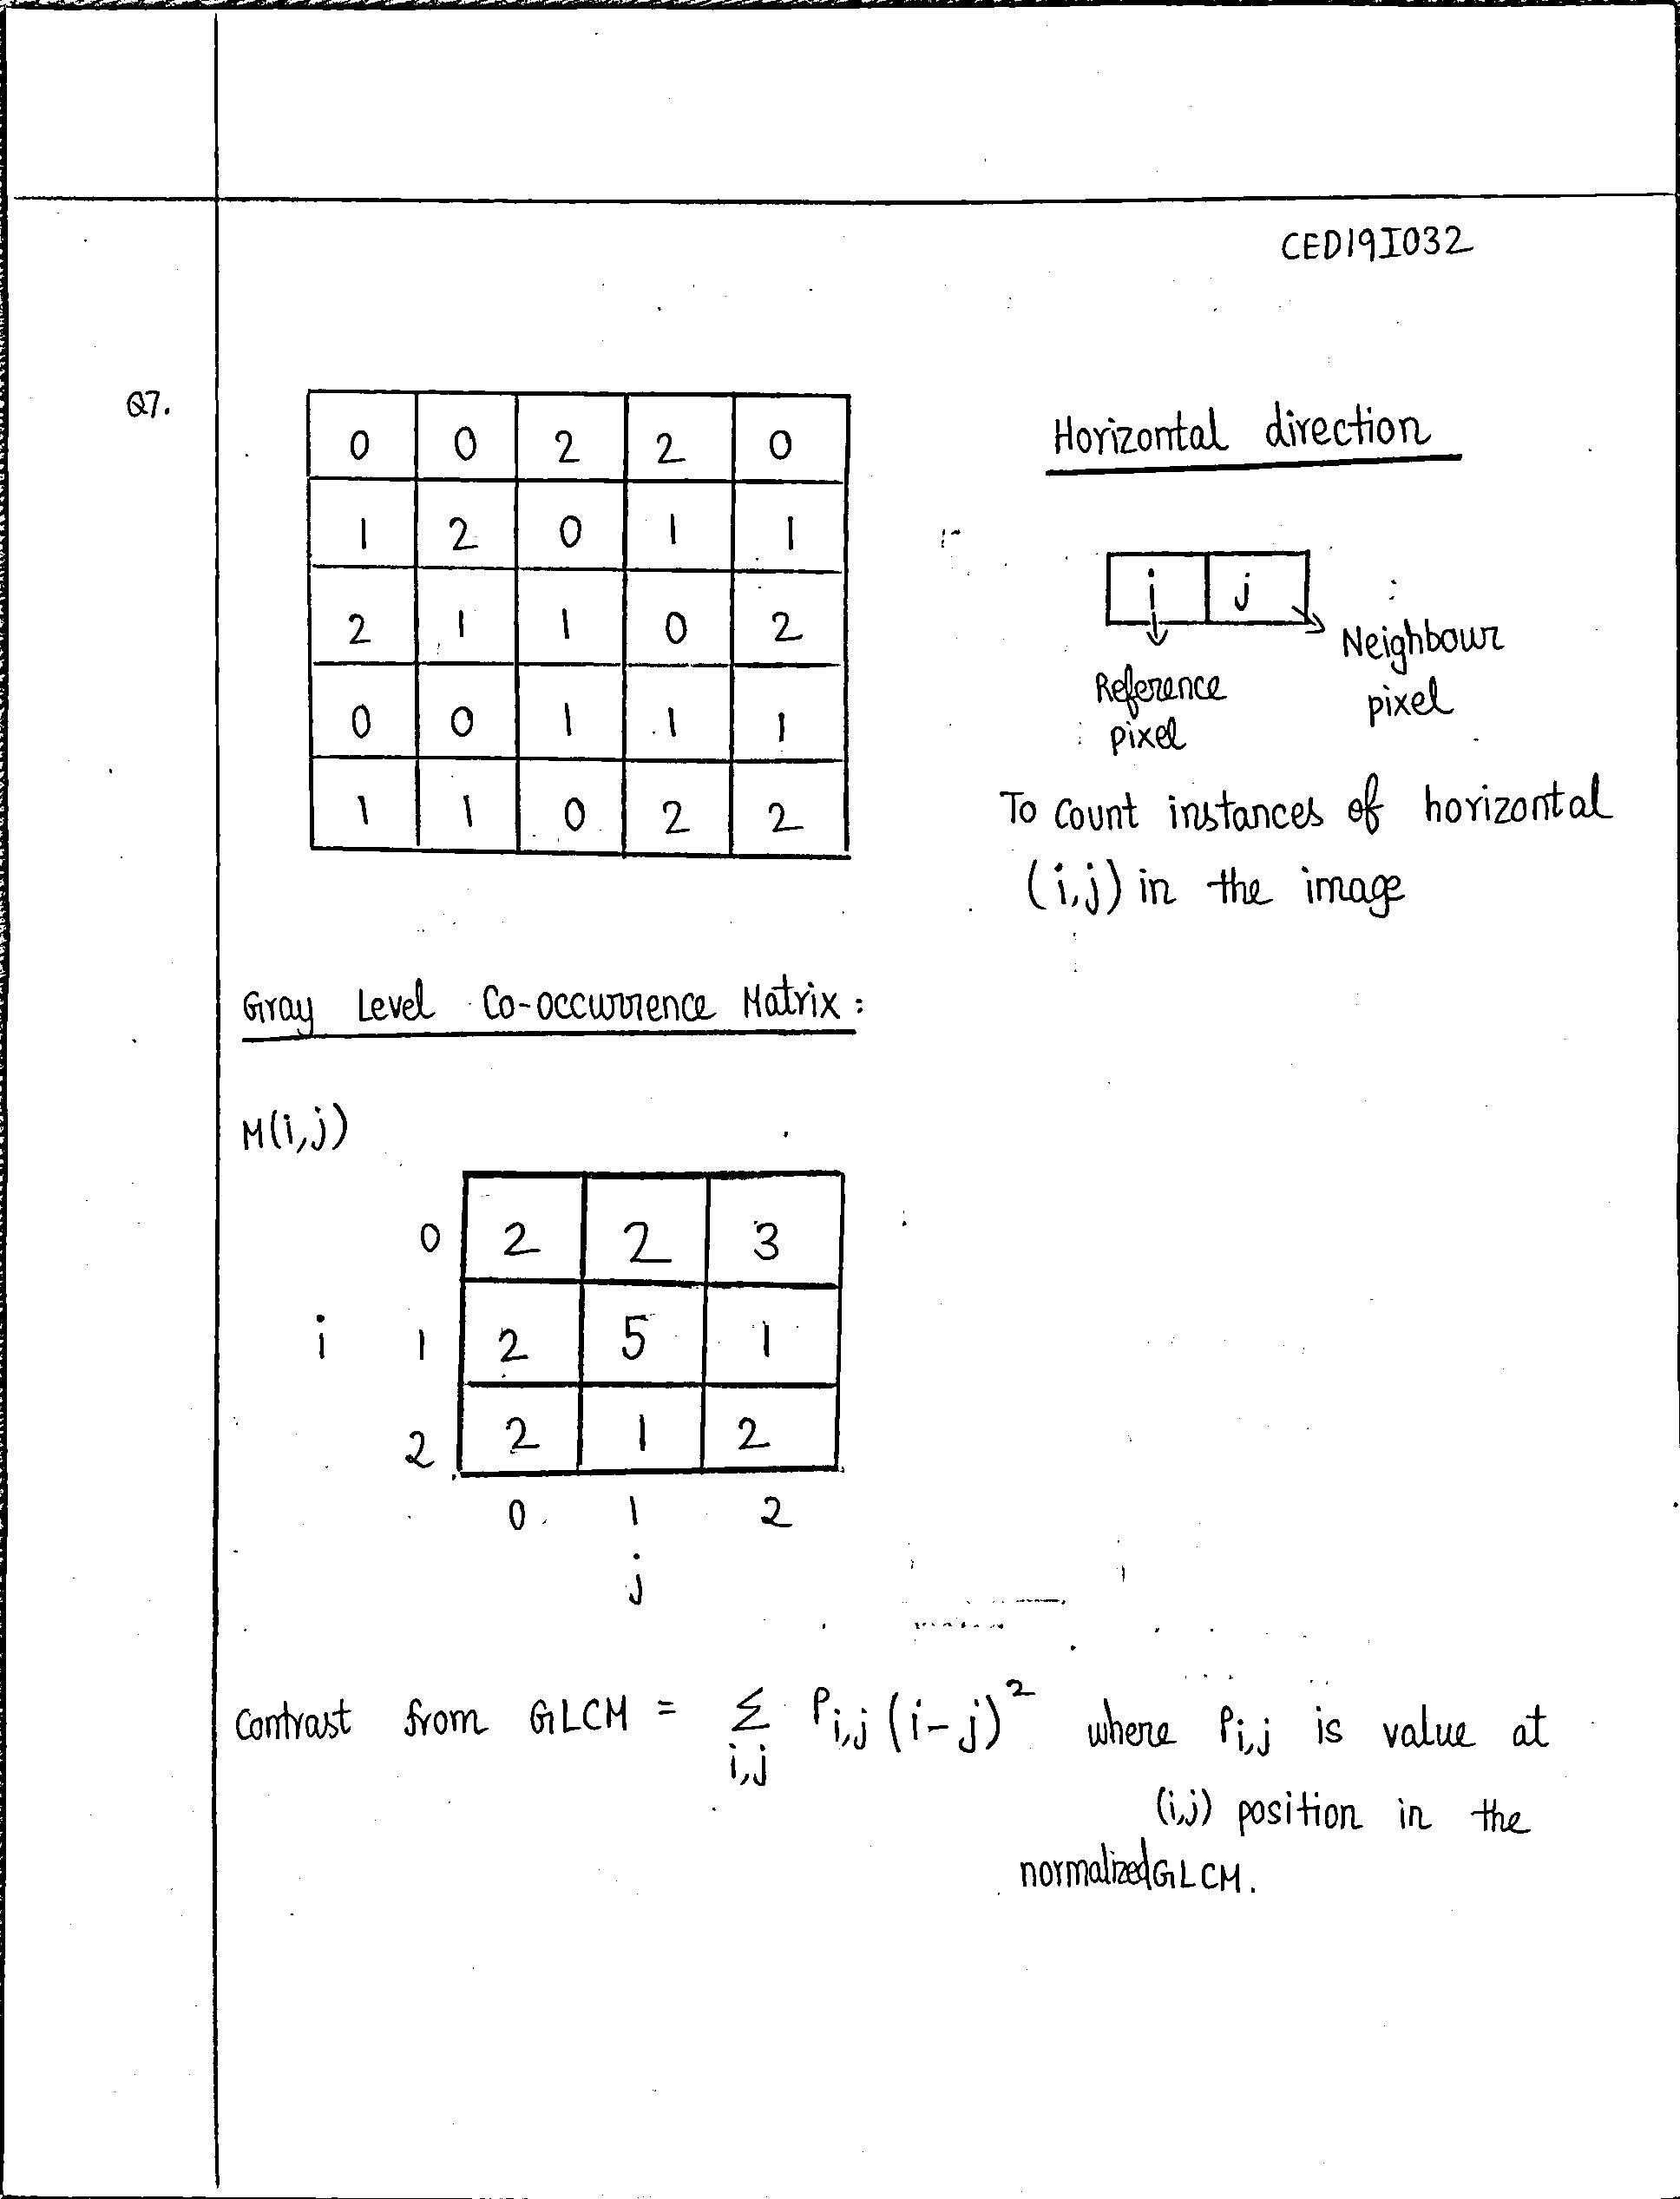 CED19I032
Q7.
0 0 2 2 0
1 2 0 1 1
2 1 1 0 2
0 0 1 1 1
1 1 0 2 2
Horizontal direction
i j
Reference
pixel
Neighbour
pixel
To count instances of horizontal
(i,j) in the image
Gray Level Co-occurrence Matrix :
M(i,j)
0 2 2 3
i 1 2 5 1
2 2 1 2
0 1 2
j
Contrast from GLCM = Σ P i,j (i-j)² where Pi,j is value at
i,j
(i,j) position in the
normalized GLCM.